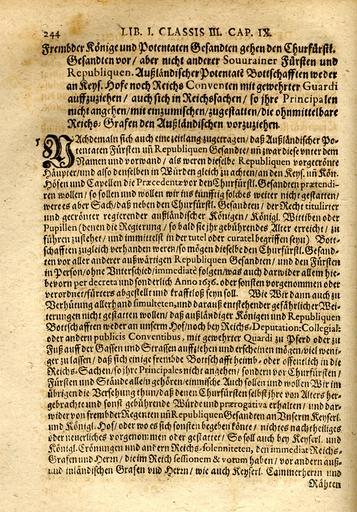 244 LIB. I. CLASSIS III. CAP. IX.
Frembder Könige und Potentaten Gesandten gehen den Churfürstl.
Gesandten vor/ aber nicht anderer Souurainer Fürsten und
Republiquen. Außländischer Potentaten Bottschafften weder
an Keys. Hofe noch Reichs Conventen mit gewehrter Guardi
auffzuziehen/ auch sich in Reichssachen/ so jhre Principalen
nicht angehen/ mit einzumischen/ zugestatten/ die ohnmittelbare
Reichs-Grafen den Außländischen vorzuziehen.
1 NAchdemaln sich auch eine zeitlang zugetragen/ daß Außländischer Po-
tentaten Fürsten uñ Republiquen Gesandten/ und zwar diese unter dem
Namen und vorwand/ als weren dieselbe Republiquen vorgecrönte
Häupter/ und also denselben in Würden gleich zu achten/ an den Keys. uñ Kön.
Höfen und Capellen die Præcedentz vor den Churfürstl. Gesandten prætendi-
ren wollen/ so sollen und wollen wir ins künfftig solches weiter nicht gestatten/
weres aber Sach/ daß neben den Churfürstl. Gesandten/ der Recht titulirter
und gecrönter regierender außländischer Königen/ Königl. Wittiben oder
Pupillen (denen die Regierung/ so bald sie jhr gebührendes Alter erreicht/ zu
führen zustehet/ und immittelst in der tutel oder curatel begriffen seyn) Bott-
schafften zugleich verhanden weren/ so mögen dieselbe den Churfürstl. Gesand-
ten vor aller anderer außwärtigen Republiquen Gesandten/ und den Fürsten
in Person/ ohne Unterschied/ immediatè folgen/ was auch darwider allem hie-
bevorn per decreta und sonderlich Anno 1636. oder sonsten vorgenommen oder
verordnet/ fürters abgestellt und krafftloß seyn soll. Wie Wir dann auch zu
Verhütung allerhand simulteten/ und daraus entstehender gefährlicher Wei-
terungen nicht gestatten wollen/ daß außländiger Königen und Republiquen
Bottschafften weder an unserm Hof/ noch bey Reichs-Deputation: Collegial:
oder andern publicis Conventibus, mit gewehrter Quardi zu Pferd oder zu
Fuß auff der Gassen und Strassen auffziehen und erscheinen mögen/ viel weni-
ger zu lassen/ daß sich einige frembde Bottschafft heimb- oder offentlich in die
Reichs-Sachen/ so jhre Principales nicht angehen/ sondern vor Churfürsten/
Fürsten und Stände allein gehören/ einmische. Auch sollen und wollen Wir im
übrigen die Versehung thun/ daß denen Churfürsten selbst jhre von Alters her-
gebrachte und sonst gebührende Würde und prærogativa erhalten/ und dar-
wider von frembder Regenten uñ Republiquen Gesandten an Unserm Keyserl.
und Königl. Hof/ oder wo es sich sonsten begeben könte/ nichtes nachtheiliges
oder neuerliches vorgenommen oder gestattet/ So soll auch bey Keyserl. und
Königl. Crönungen und andern Reichs-solenniteten, den immediat Reichs-
Grafen und Herrn/ die im Reich sessionem & votum haben/ vor andern auß-
und inländischen Grafen und Herrn/ wie auch Keyserl. Cammerherrn und
Rähten